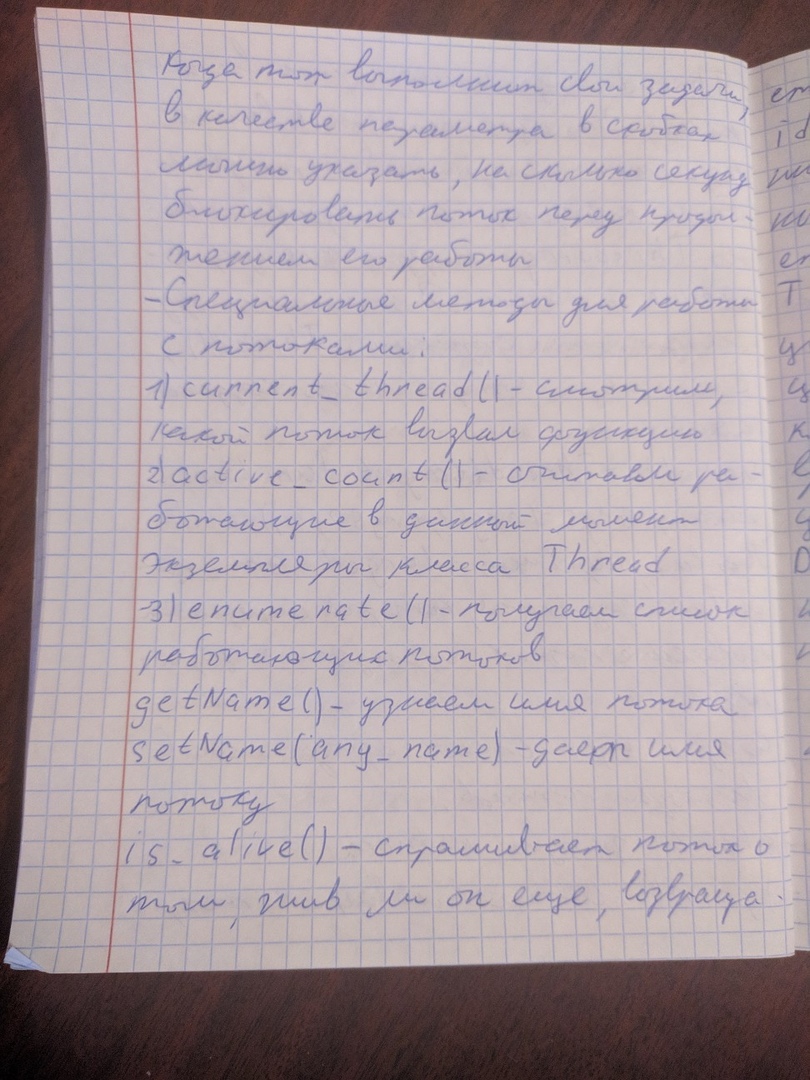 когда тот выполнит свои задачи,
в качестве параметра в скобках
можно указать, на сколько секунд
блокировать поток перед продол-
жением его работы
-Специальные методы для работы
с потоками:
1) current_thread() - смотрим,
какой поток вызвал функцию
2) active_count() - считаем ра-
ботающие в данный момент
экземпляры класса Thread
3) enumerate() - получаем список
работающих потоков
getName() - узнаем имя потока
setName(any_name) - даем имя
потоку
is_alive() - спрашивает поток о
том, жив ли он еще, возвраща-